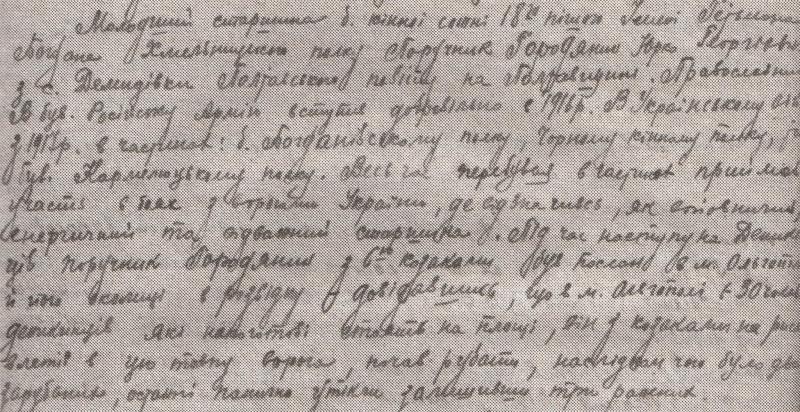 Молодший старшина б. кінної сотні 18го пішого Гетьмана
Богдана Хмельницького полку Поручник Городянин Юрко Георгієв
з с. Демидівки Полтавського повіту на Полтавщині. Православний
В був. Російську Армію вступив добровільно в 1916 р. В Українському
з 1917 р. в частинах: б. Богданівському полку, Чорному кінному полку,
був. Кармелюцькому полку. Весь час перебував в частинах приймав
участь в боях з ворогами України, де відзначивсь, як
енергичний та відважний старшина. Під час наступу на Деник
ців поручник Городянин з 6ма козаками був посланий в м. Ольгопіль
й його околиці в розвідку – довідавшись, що в м. Ольгополі є 30 чолов
деникінців які наготові стоять на площі, він з козаками на
влетів в цю товпу ворога, почав рубати, наслідком чого було
зарубано, останні панично утікли залишивши три ранених.